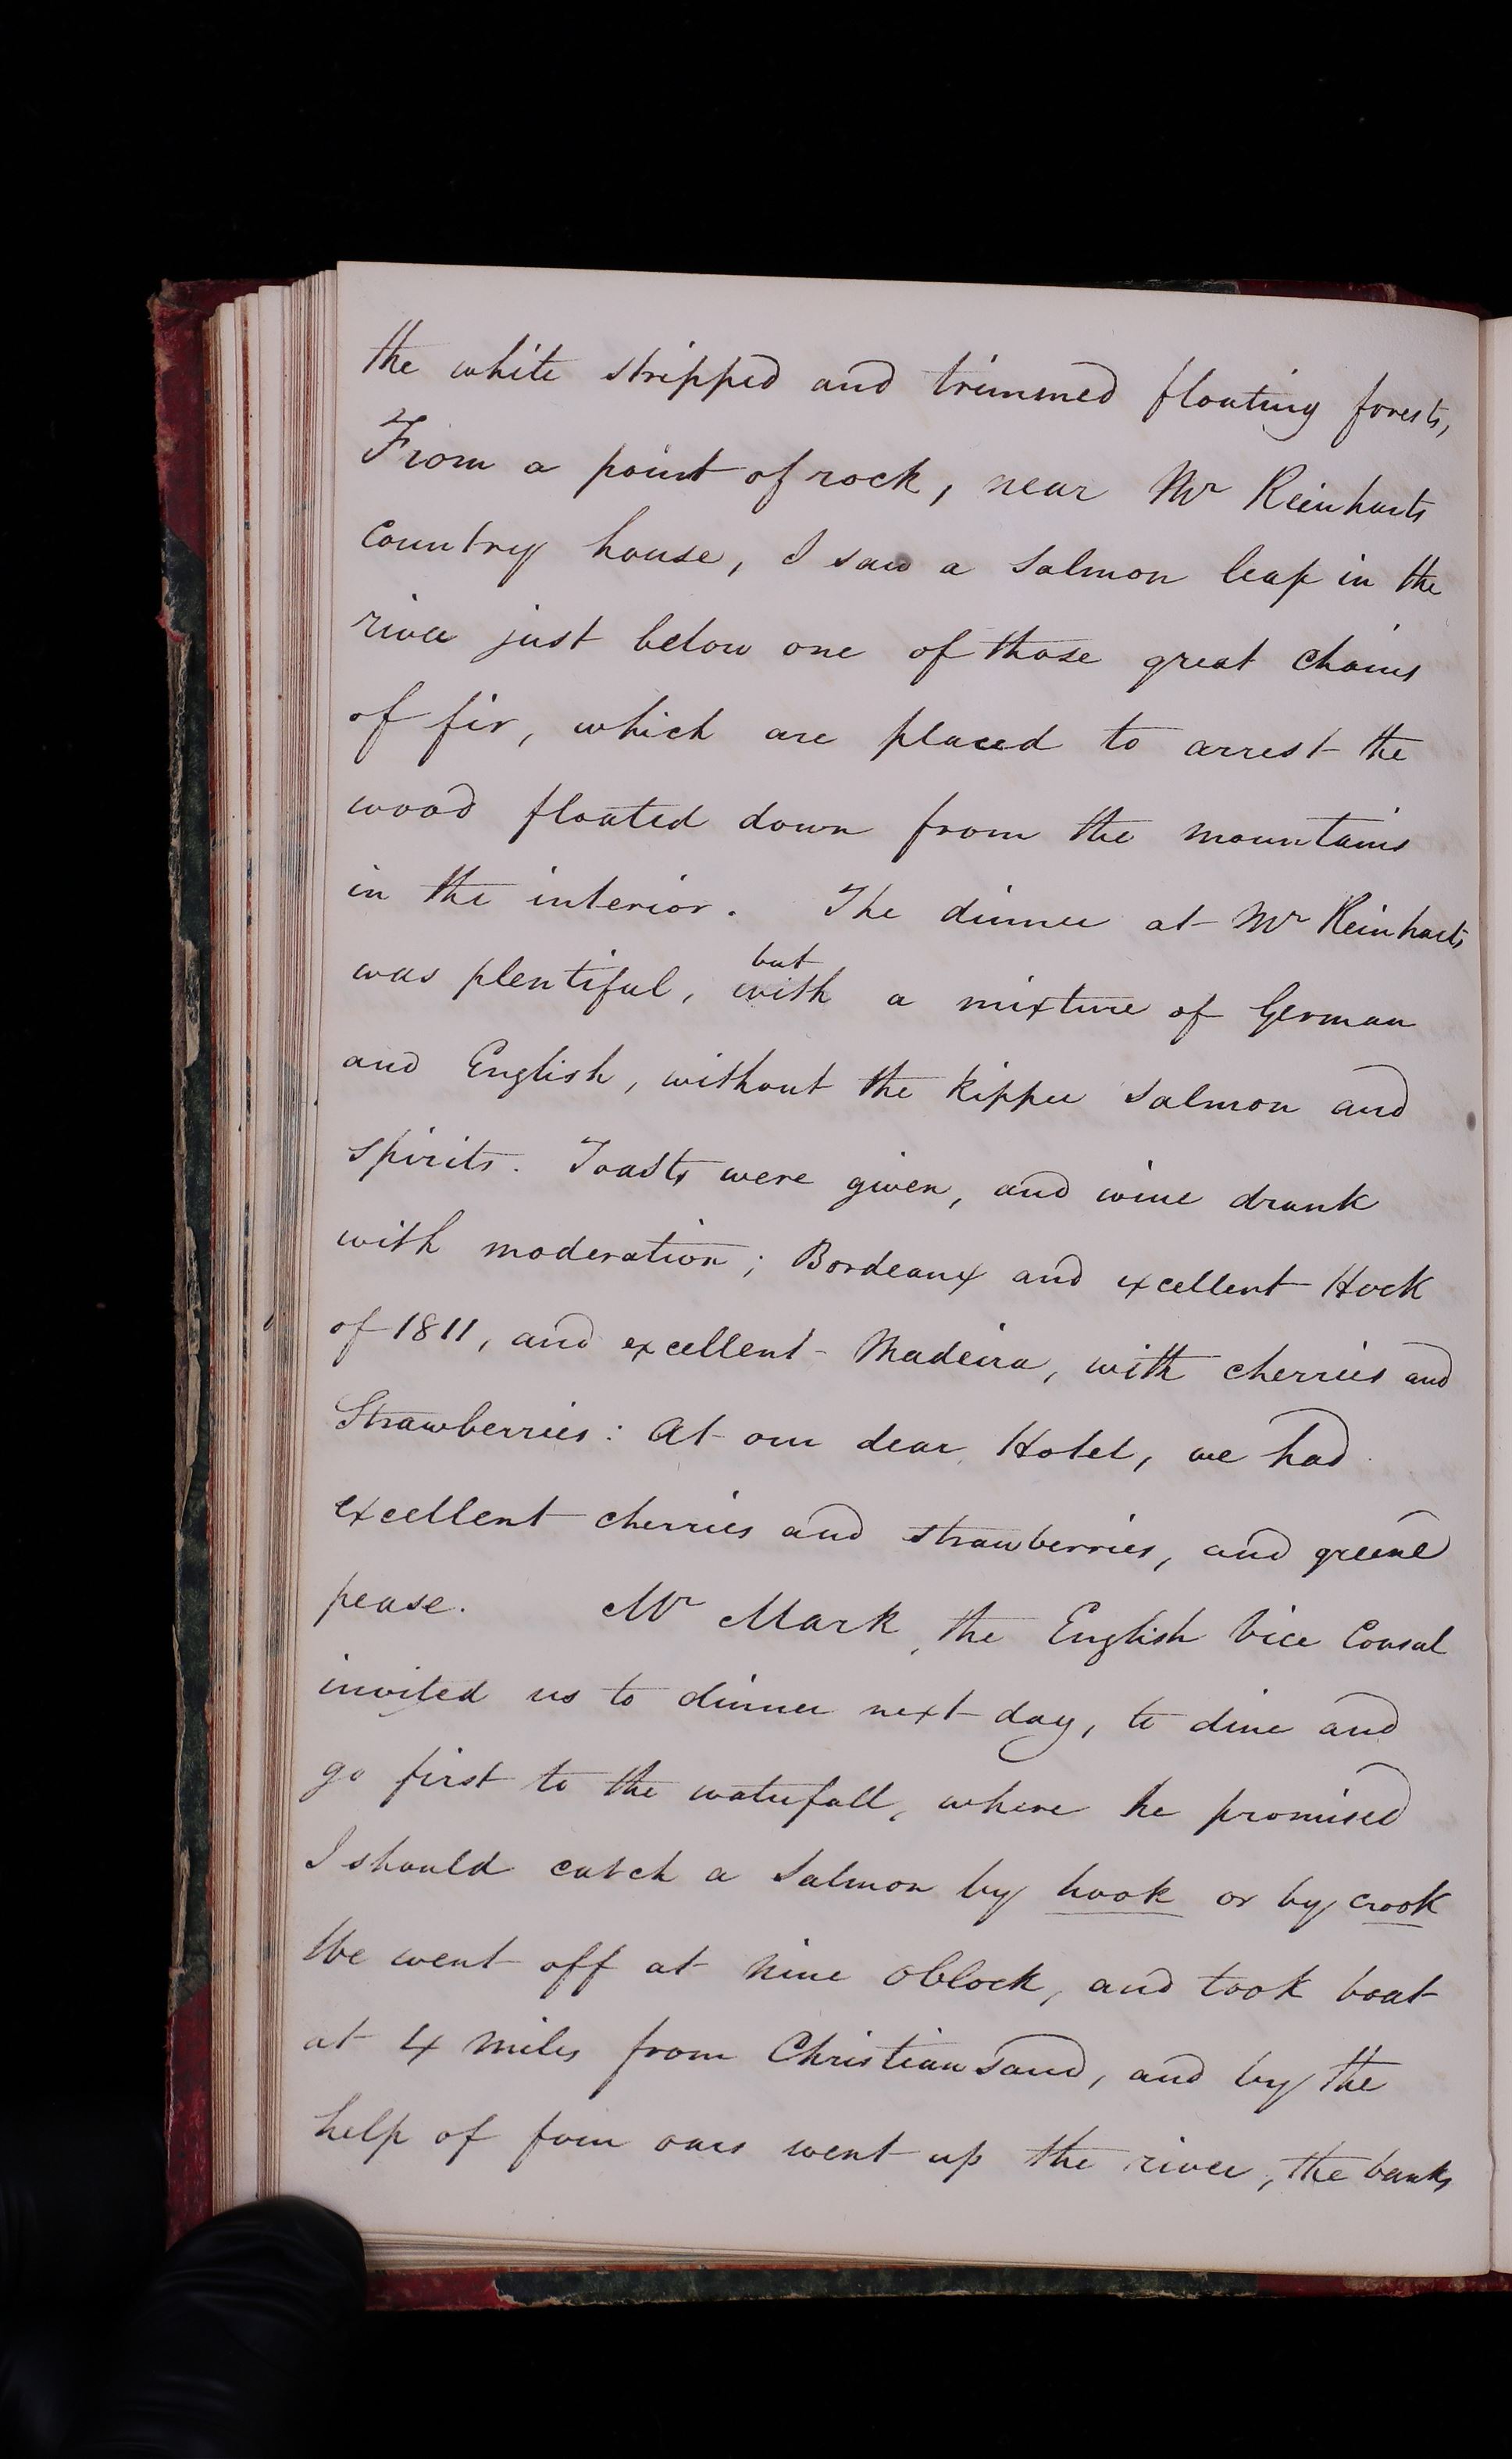 the white stripped and trimmed floating forests,
From a point of rock, near Mr Reinharts
Country house, I saw a salmon leap in the
river just below one of those great chains
of fir, which are placed to arrest the
wood floated down from the mountains
in the interior. The dinner at Mr Reinharts
but
was plentiful, with a mixture of German
and English, without the kipper salmon and
spirits. Toasts were given, and wine drank
with moderation; Bordeaux and excellent Hock
of 1811, and excellent Madeira, with cherries and
Strawberries: At our dear Hotel, we had
excellent cherries and strawberries, and greene
pease. Mr Mark, the English Vice Consul
invited us to dinner next day, to dine and
go first to the waterfall, where he promised
I should catch a salmon by hook or by crook
We went off at nine oClock, and took boat
at 4 miles from Christiansand, and by the
help of four oars went up the river, the banks